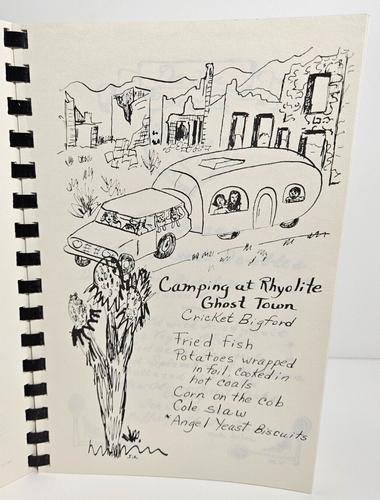 Camping at Rhyolite
Ghost Town
Cricket Bigford
Fried Fish
Potatoes wrapped
in foil, cooked in
hot coals
Corn on the cob
Cole slaw
*Angel Yeast Biscuits